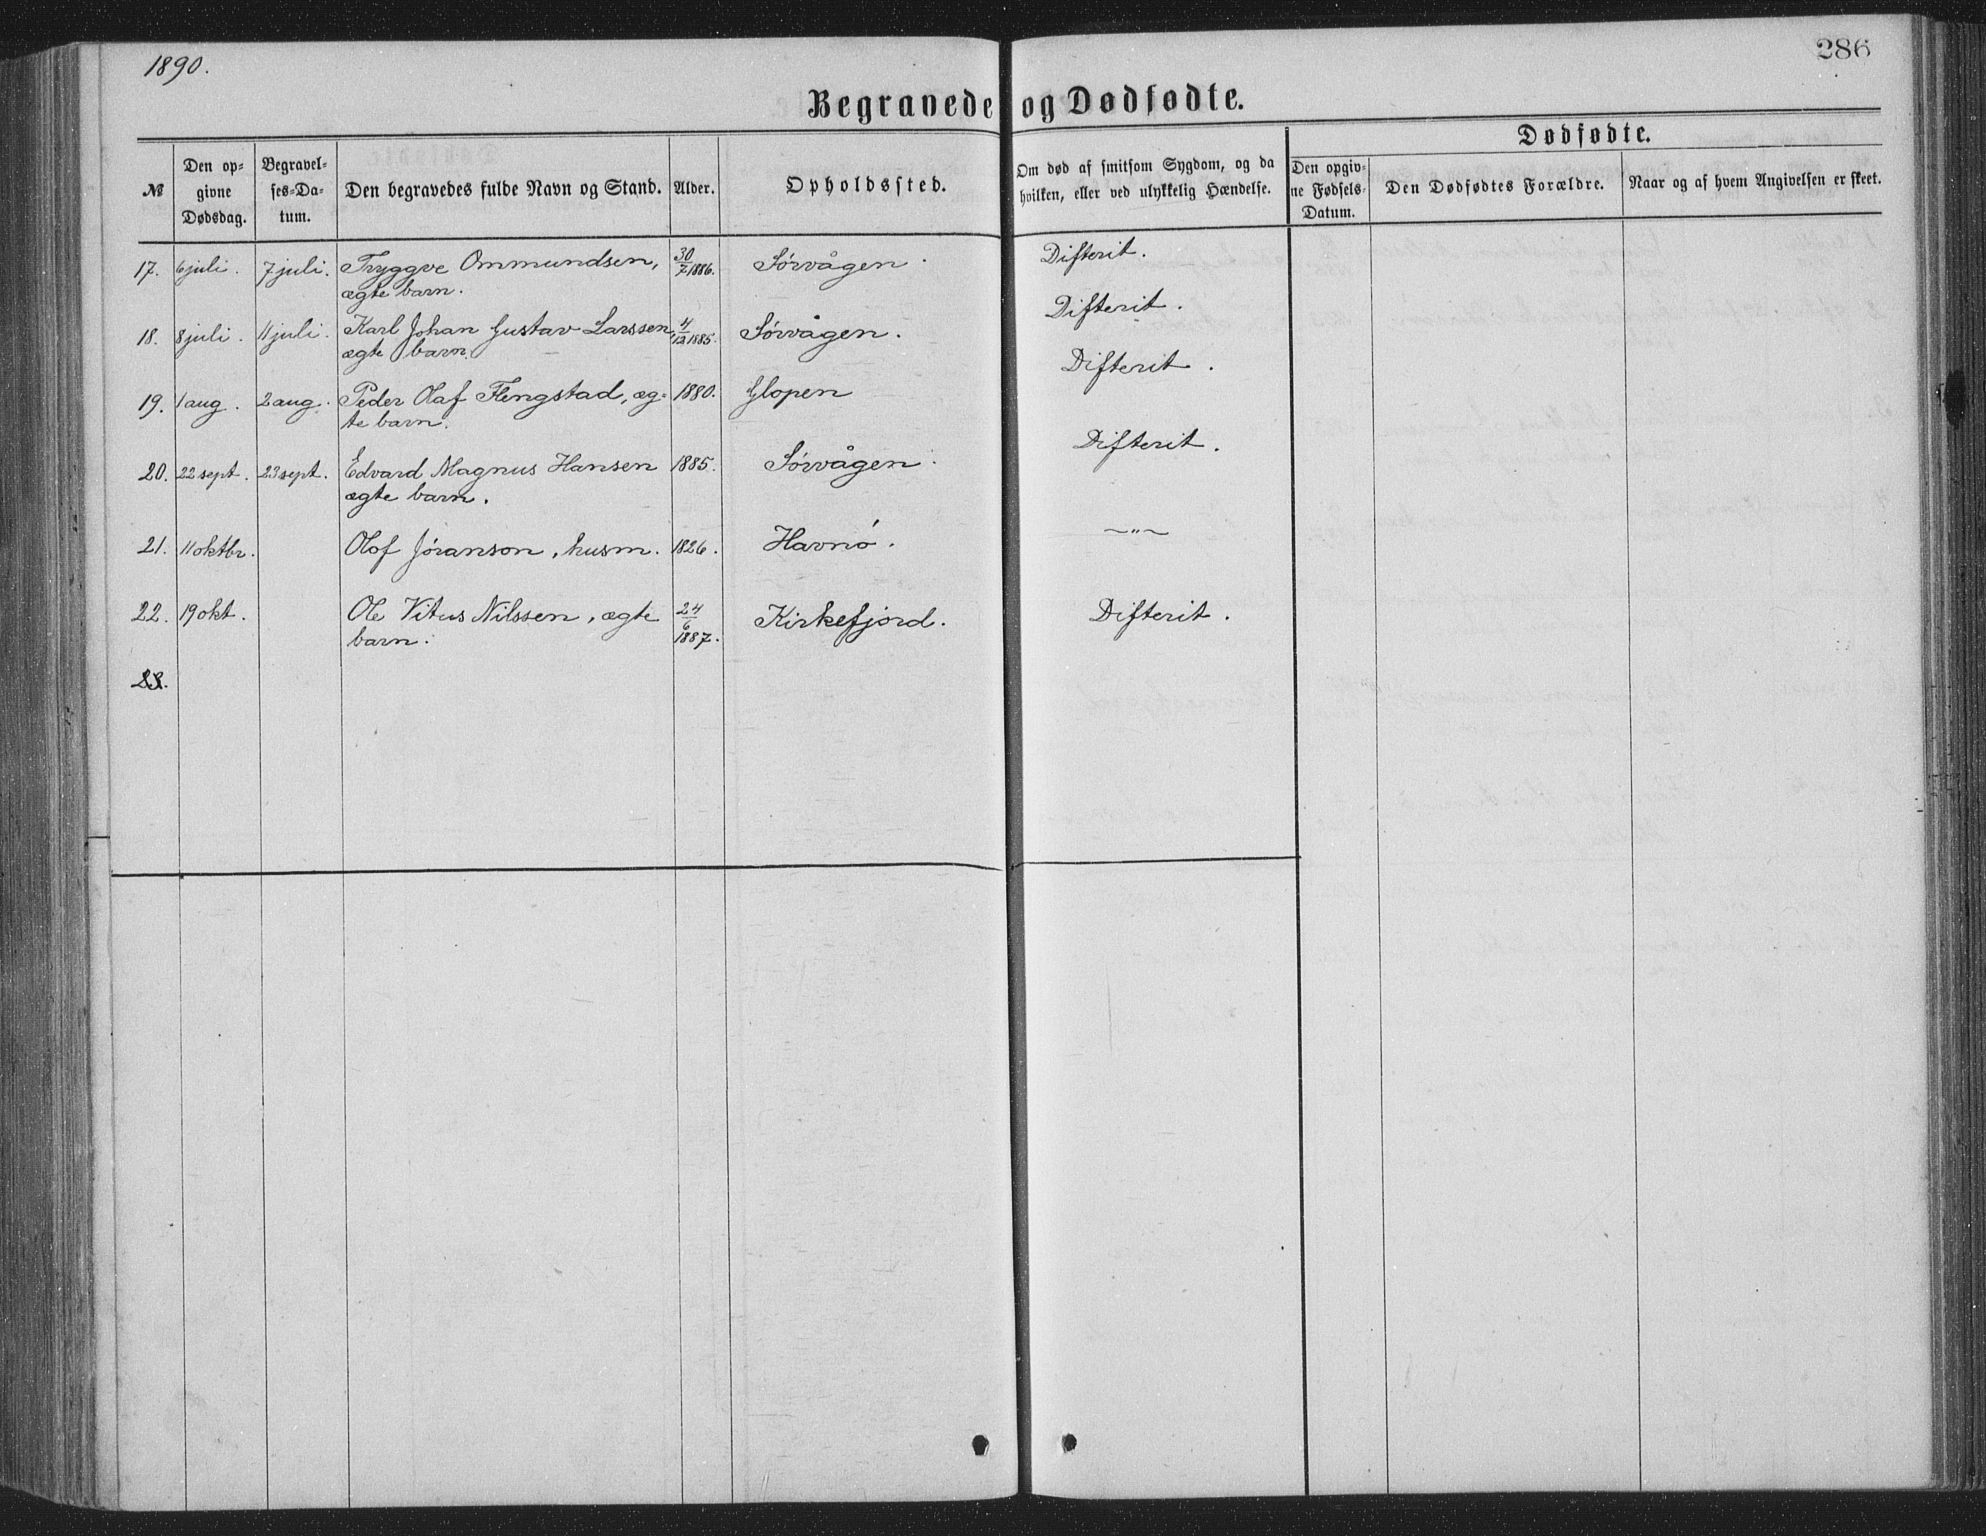 1890.
286
Begravede og Dødfødte.
Dødfødte.
№
Den op-
givne
Dødsdag.
Begravel-
ses-Da-
tum.
Den begravedes fulde Navn og Stand.
Alder.
Opholdssted.
Om død af smitsom Sygdom, og da
hvilken, eller ved ulykkelig Hændelse.
Den opgiv-
ne Fødsels-
Datum.
Den Dødfødtes Forældre.
Naar og af hvem Angivelsen er skeet.
17. 6 juli. 7 juli. Tryggve Ommundsen, 30/7 1886. Sórvågen. Difterit.
ægte barn.
18. 8 juli. 11 juli. Karl Johan Gustav Larssen, 4/12 1885. Sórvågen. Difterit.
ægte barn.
19. 1 aug. 2 aug. Peder Olaf Flengstad, æg- 1880. Glopen Difterit.
te barn.
20. 22 sept. 23 sept. Edvard Magnus Hansen 1885. Sórvågen. Difterit.
ægte barn.
21. 11 oktbr. Olof Jóranson, husm. 1826. Havnó. —„—
22. 19 okt. Ole Vitus Nilssen, ægte 24/6 1887. Kirkefjord. Difterit.
barn.
23.